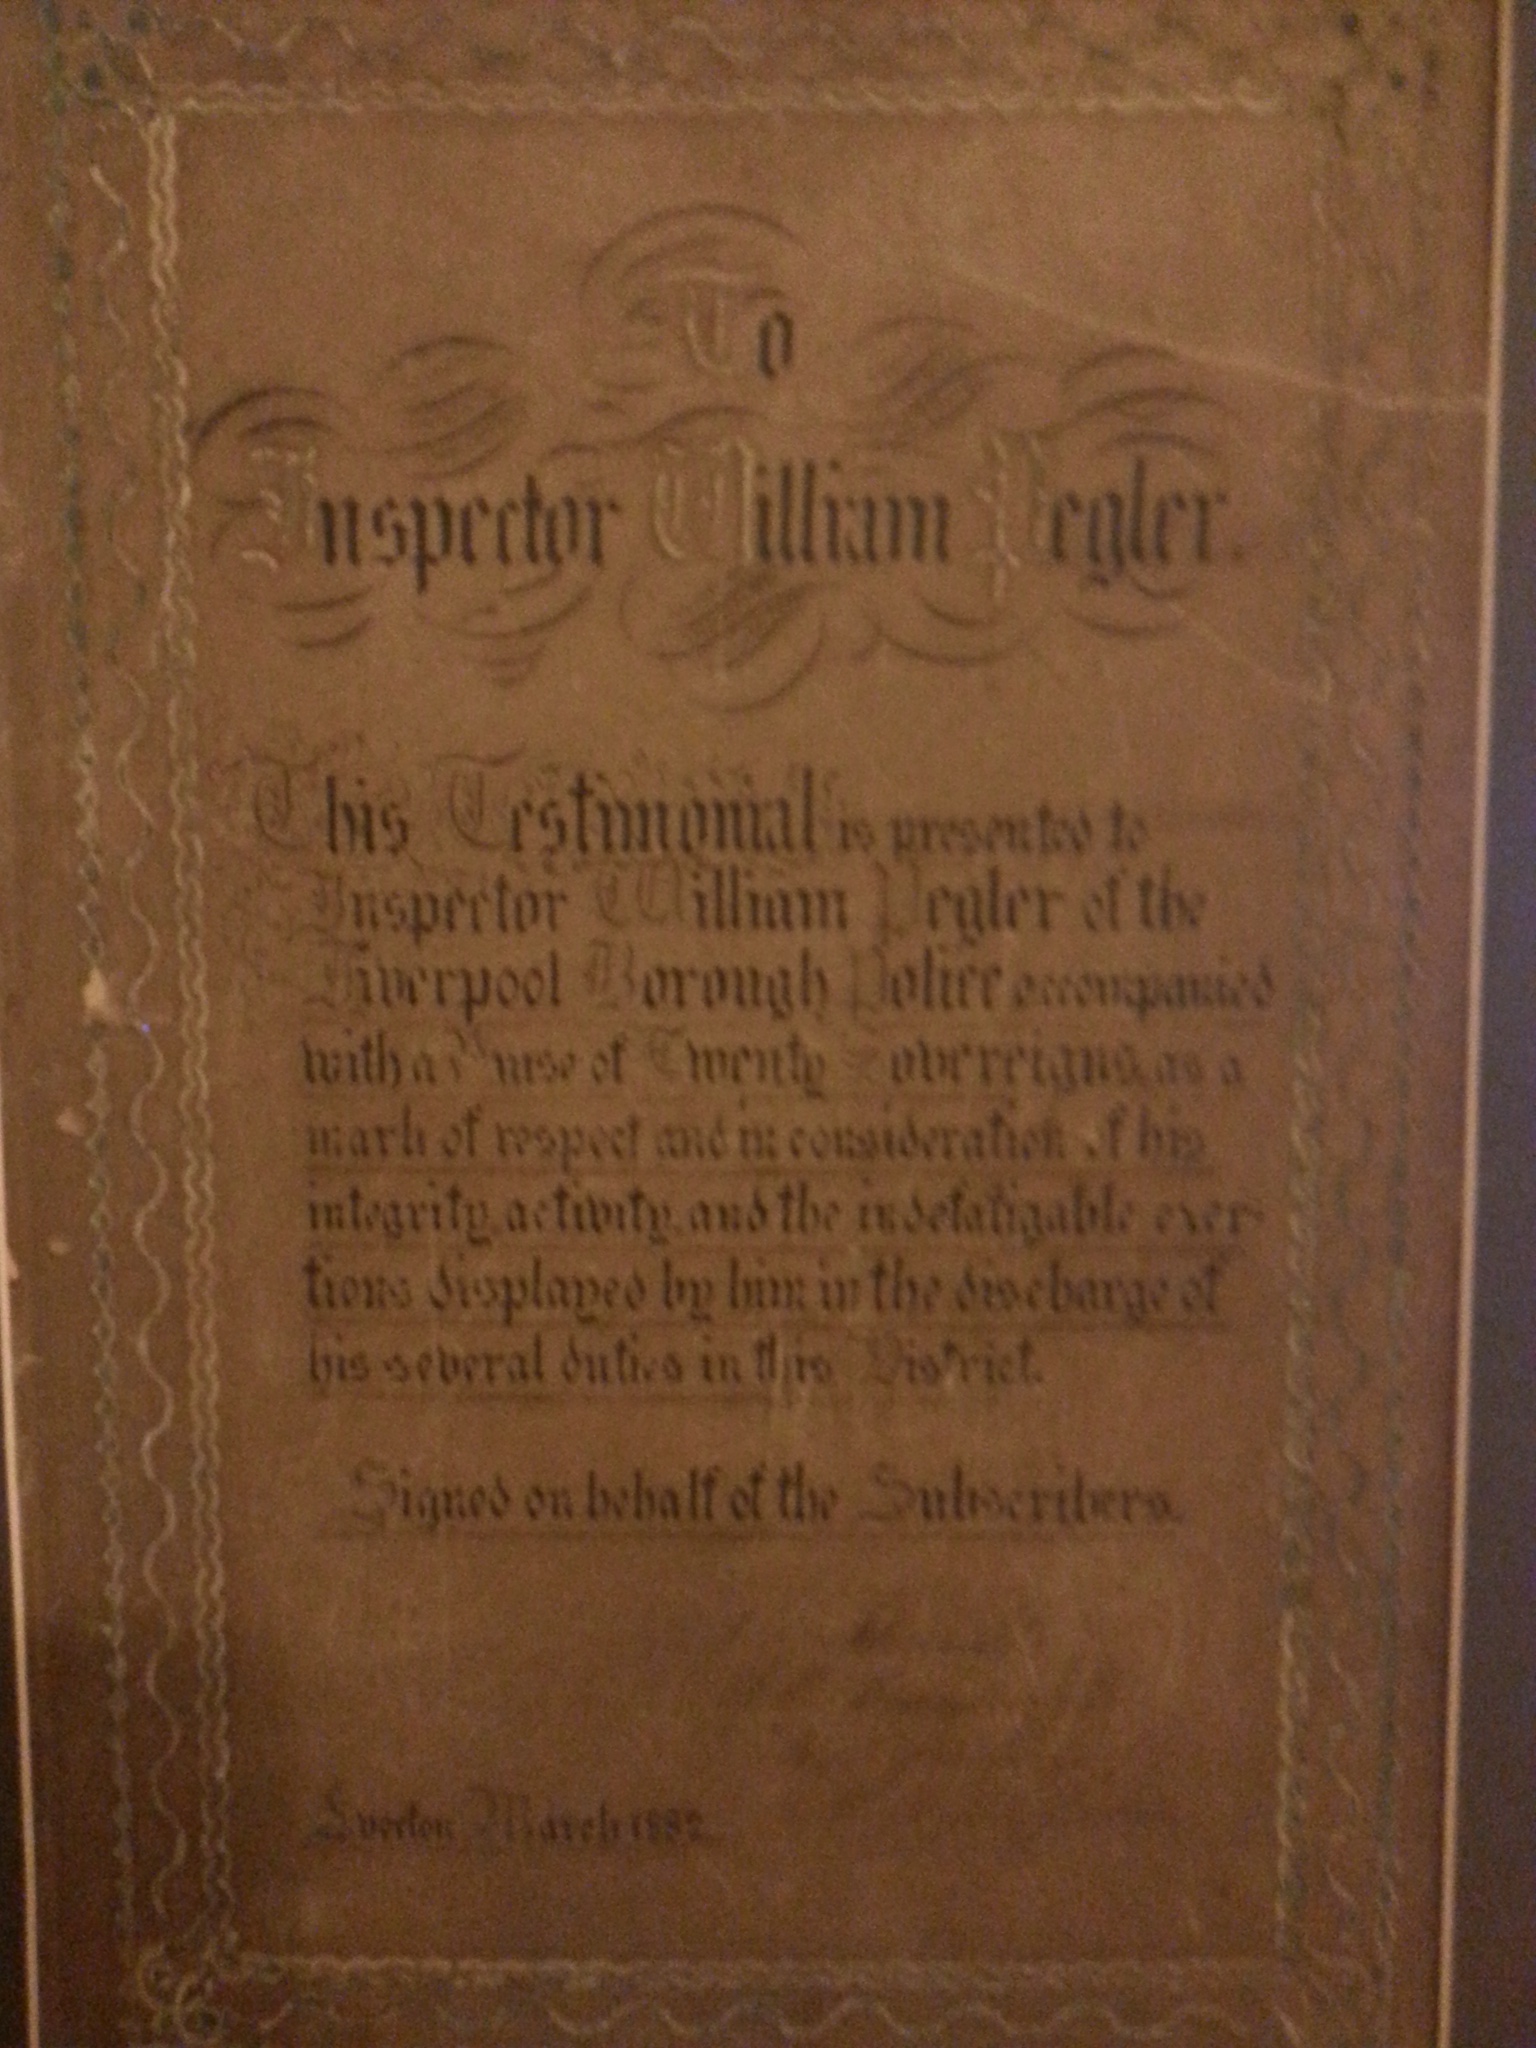 To
Inspector William Pegler.
This Testimonial is presented to
Inspector William Pegler of the
Liverpool Borough Police accompanied
with a Purse of Twenty Sovereigns, as a
mark of respect and in consideration of his
integrity, activity, and the indefatigable exer-
tions displayed by him in the discharge of
his several duties in this District.
Signed on behalf of the Subscribers.
Everton March 1882